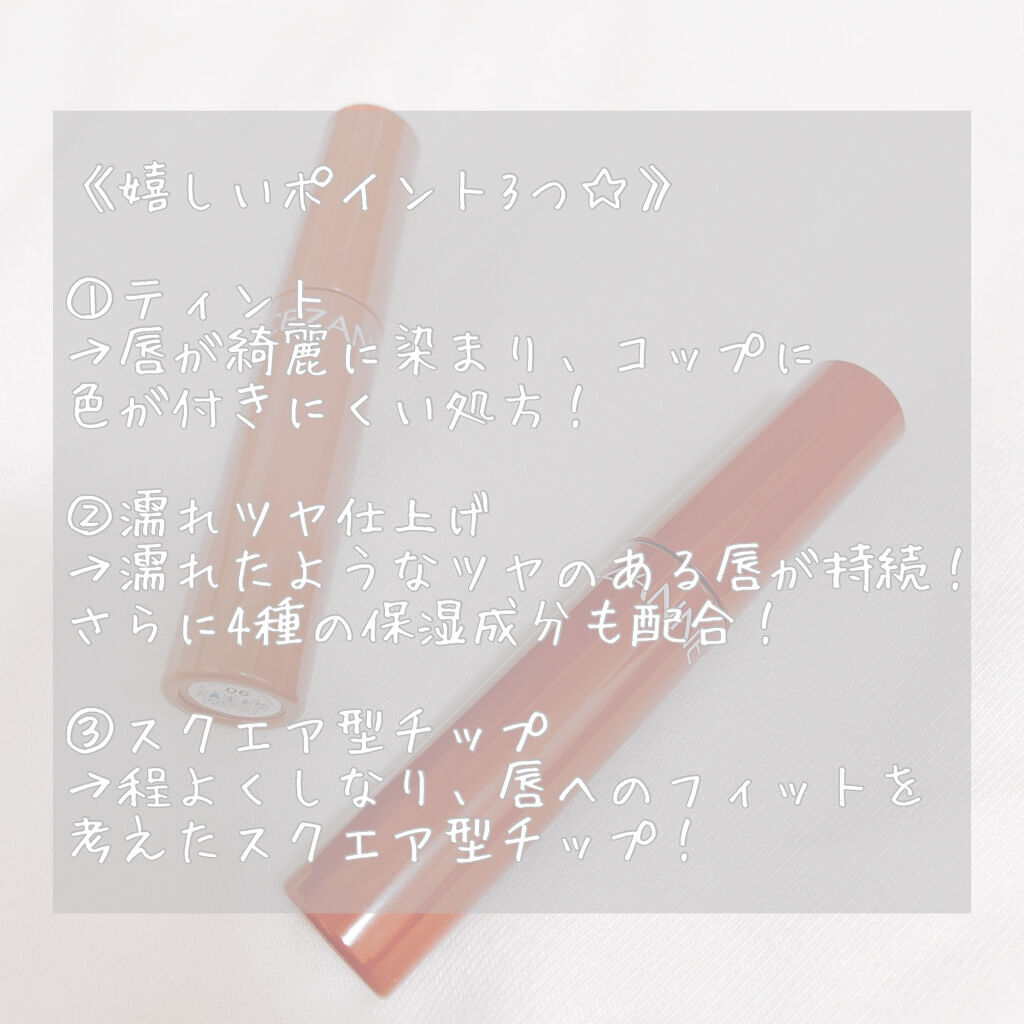 《嬉しいポイント3つ☆》
①ティント
→唇が綺麗に染まり、コップに
色が付きにくい処方！
②濡れツヤ仕上げ
→濡れたようなツヤのある唇が持続！
さらに4種の保湿成分も配合！
③スクエア型チップ
→程よくしなり、唇へのフィットを
考えたスクエア型チップ！
CEZAN
06